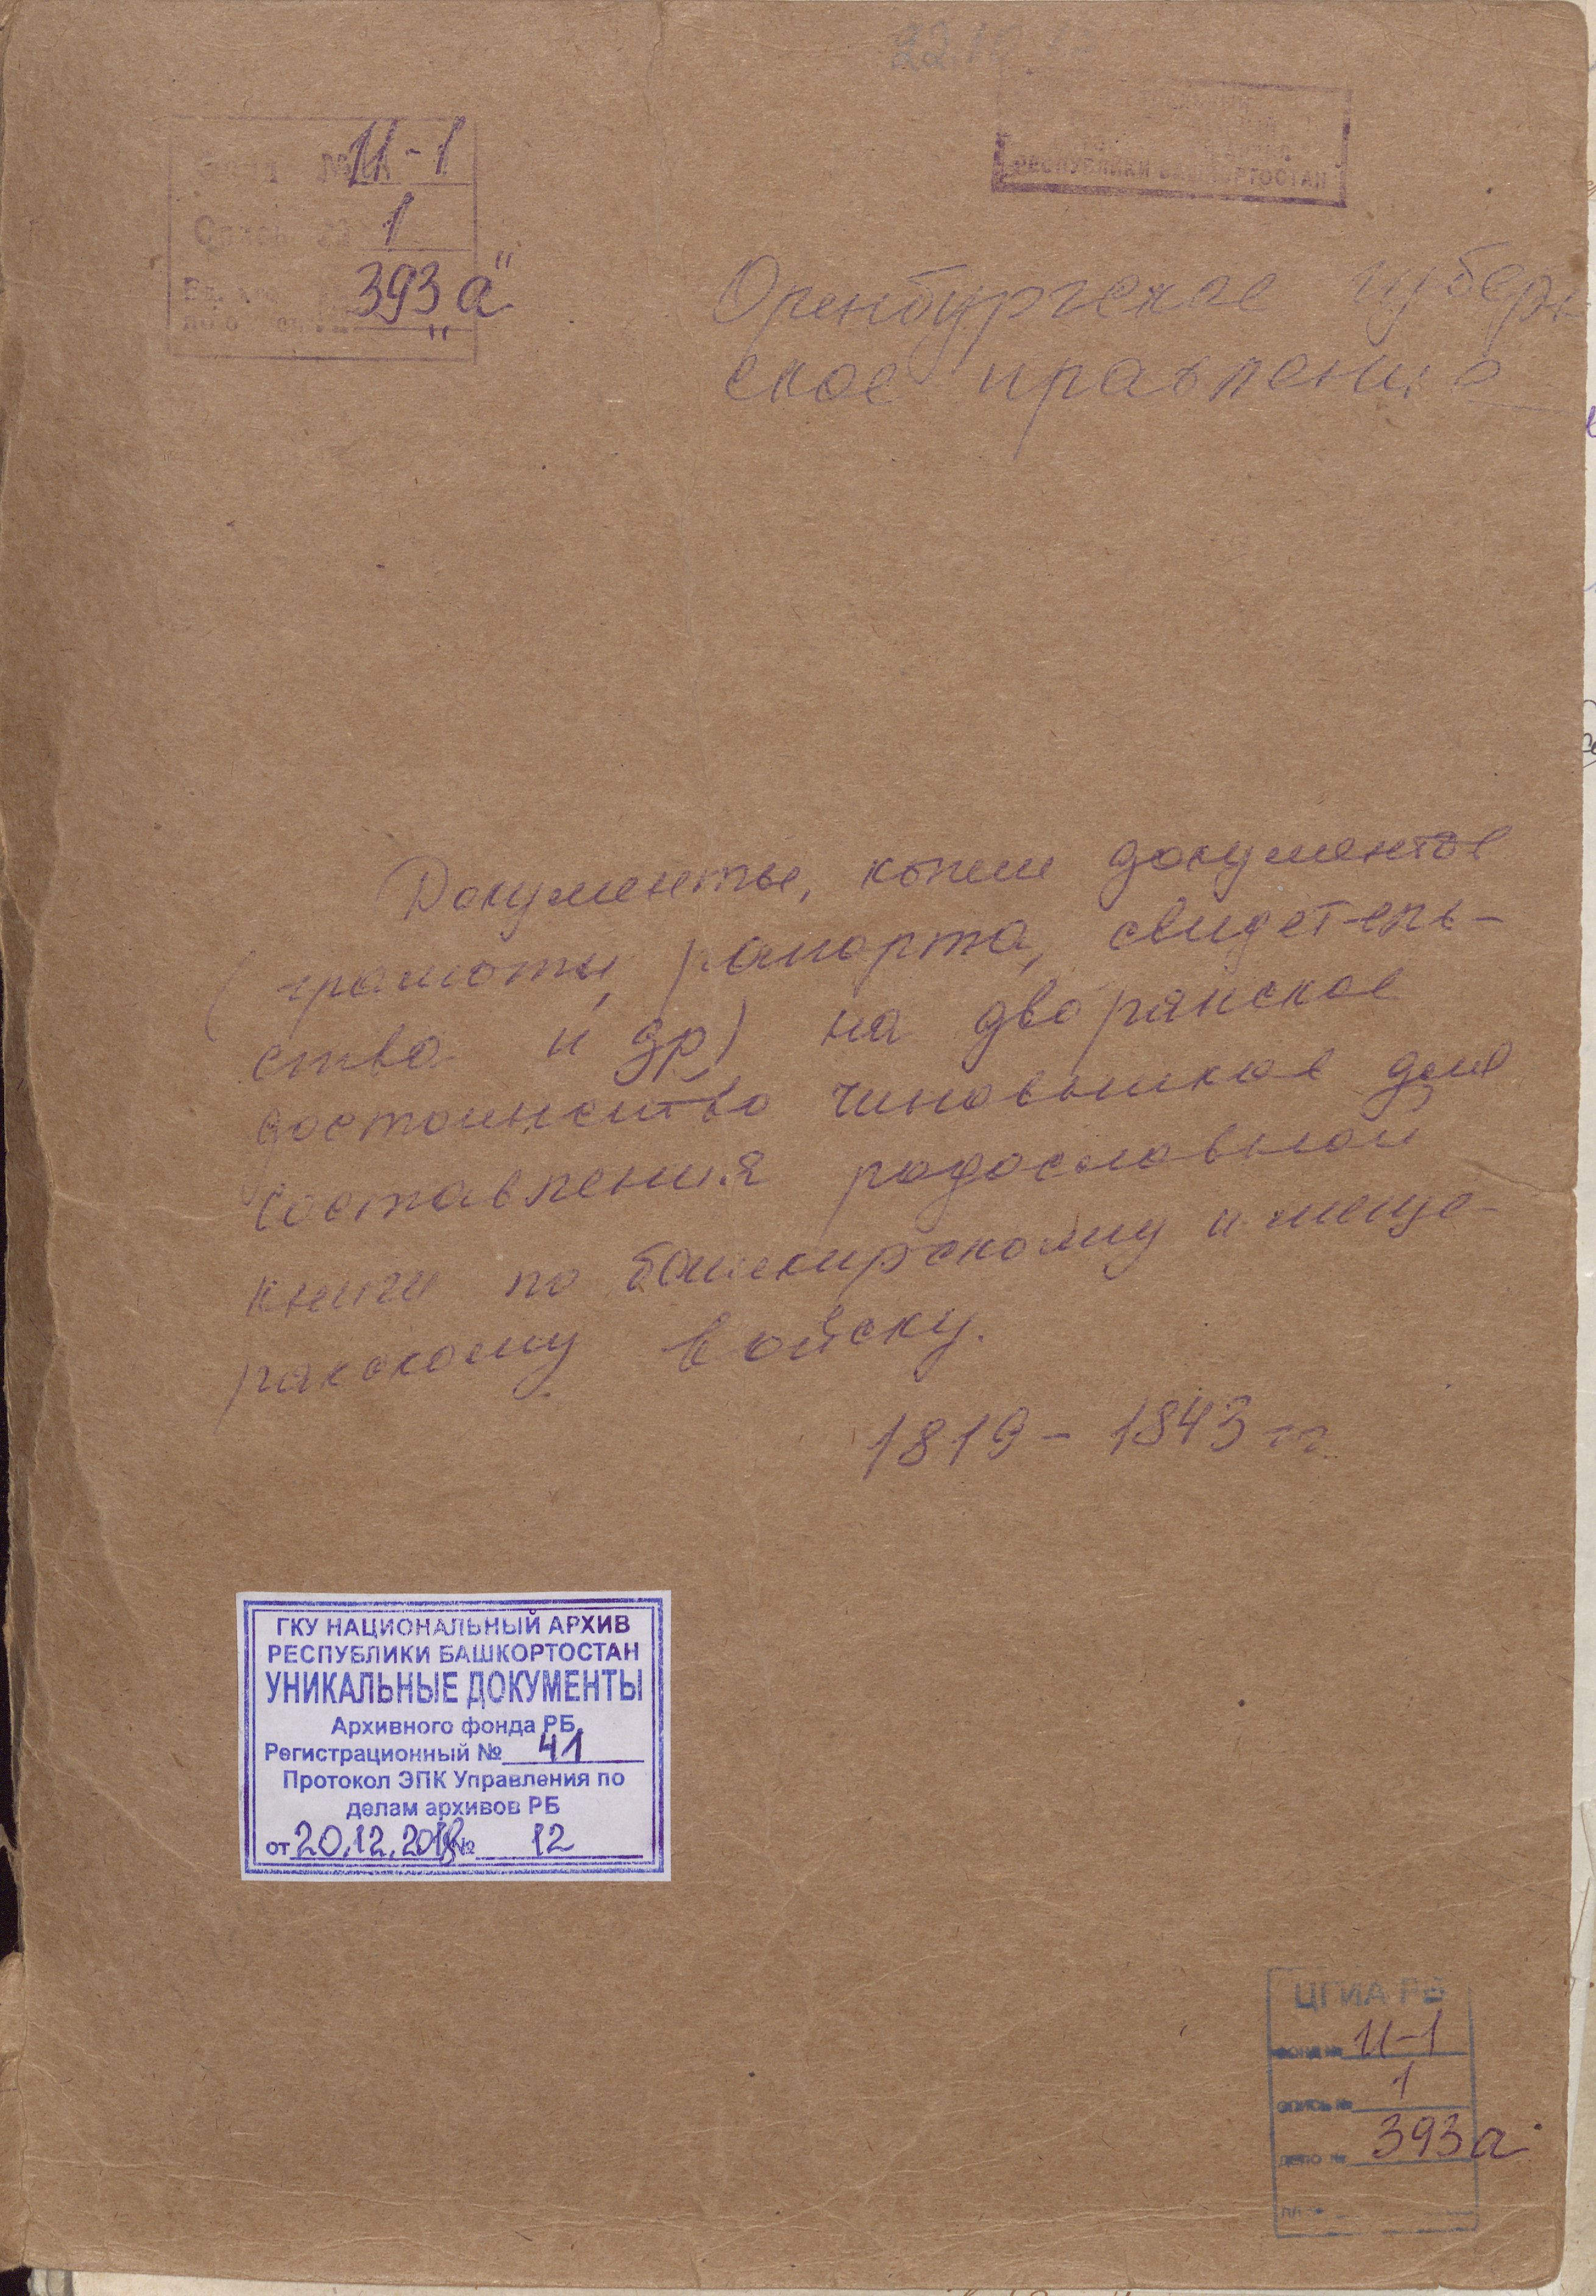 Фонд № И-1
Опись № 1
393 "а"
РЕСПУБЛИКИ БАШКОРТОСТАН
Оренбургское губерн
ское правление
Документы, копии документов
(грамоты, рапорта, свидетель-
ства и др) на дворянское
достоинство чиновников для
составления родословной
книги по башкирскому и меще-
рякскому войску.
1819 - 1843 гг
ГКУ НАЦИОНАЛЬНЫЙ АРХИВ
РЕСПУБЛИКИ БАШКОРТОСТАН
УНИКАЛЬНЫЕ ДОКУМЕНТЫ
Архивного фонда РБ
Регистрационный № 41
Протокол ЭПК Управления по
делам архивов РБ
от 20.12.2018 № 12
ЦГИА РБ
ФОНД № И-1
ОПИСЬ № 1
ДЕЛО № 393а